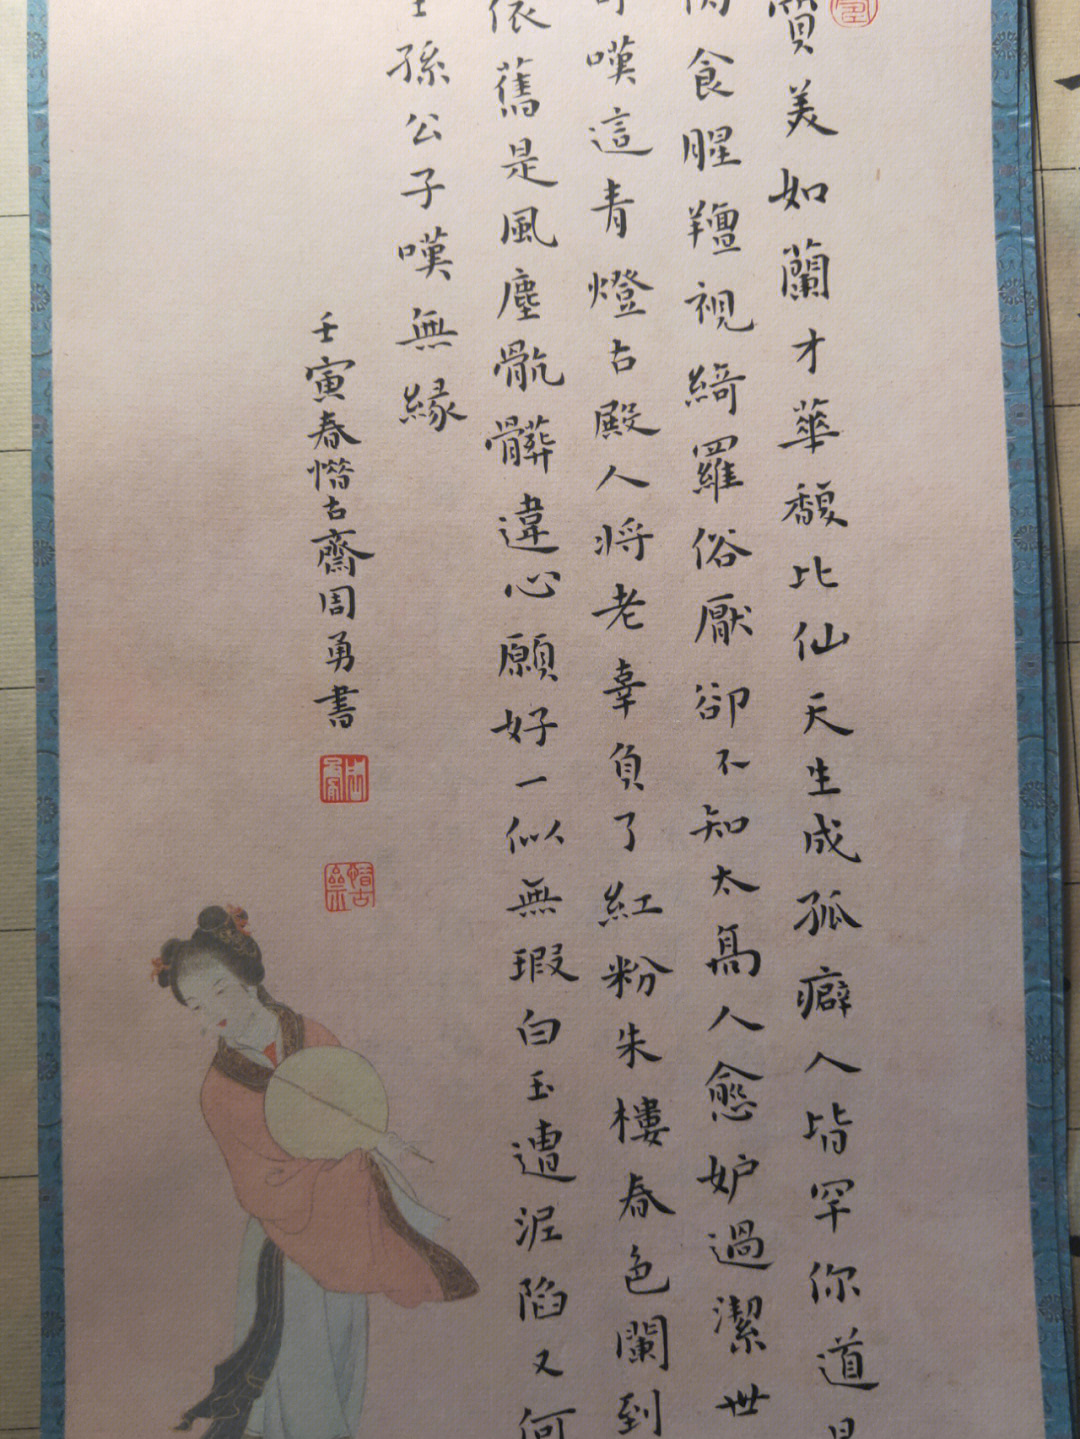 質美如蘭才華馥比仙天生成孤癖人皆罕你道是
肉食腥羶視綺羅俗厭卻不知太高人愈妒過潔世
可嘆這青燈古殿人將老辜負了紅粉朱樓春色闌到
依舊是風塵骯髒違心願好一似無瑕白玉遭泥陷又何
王孫公子嘆無緣
壬寅春惜古齋周勇書